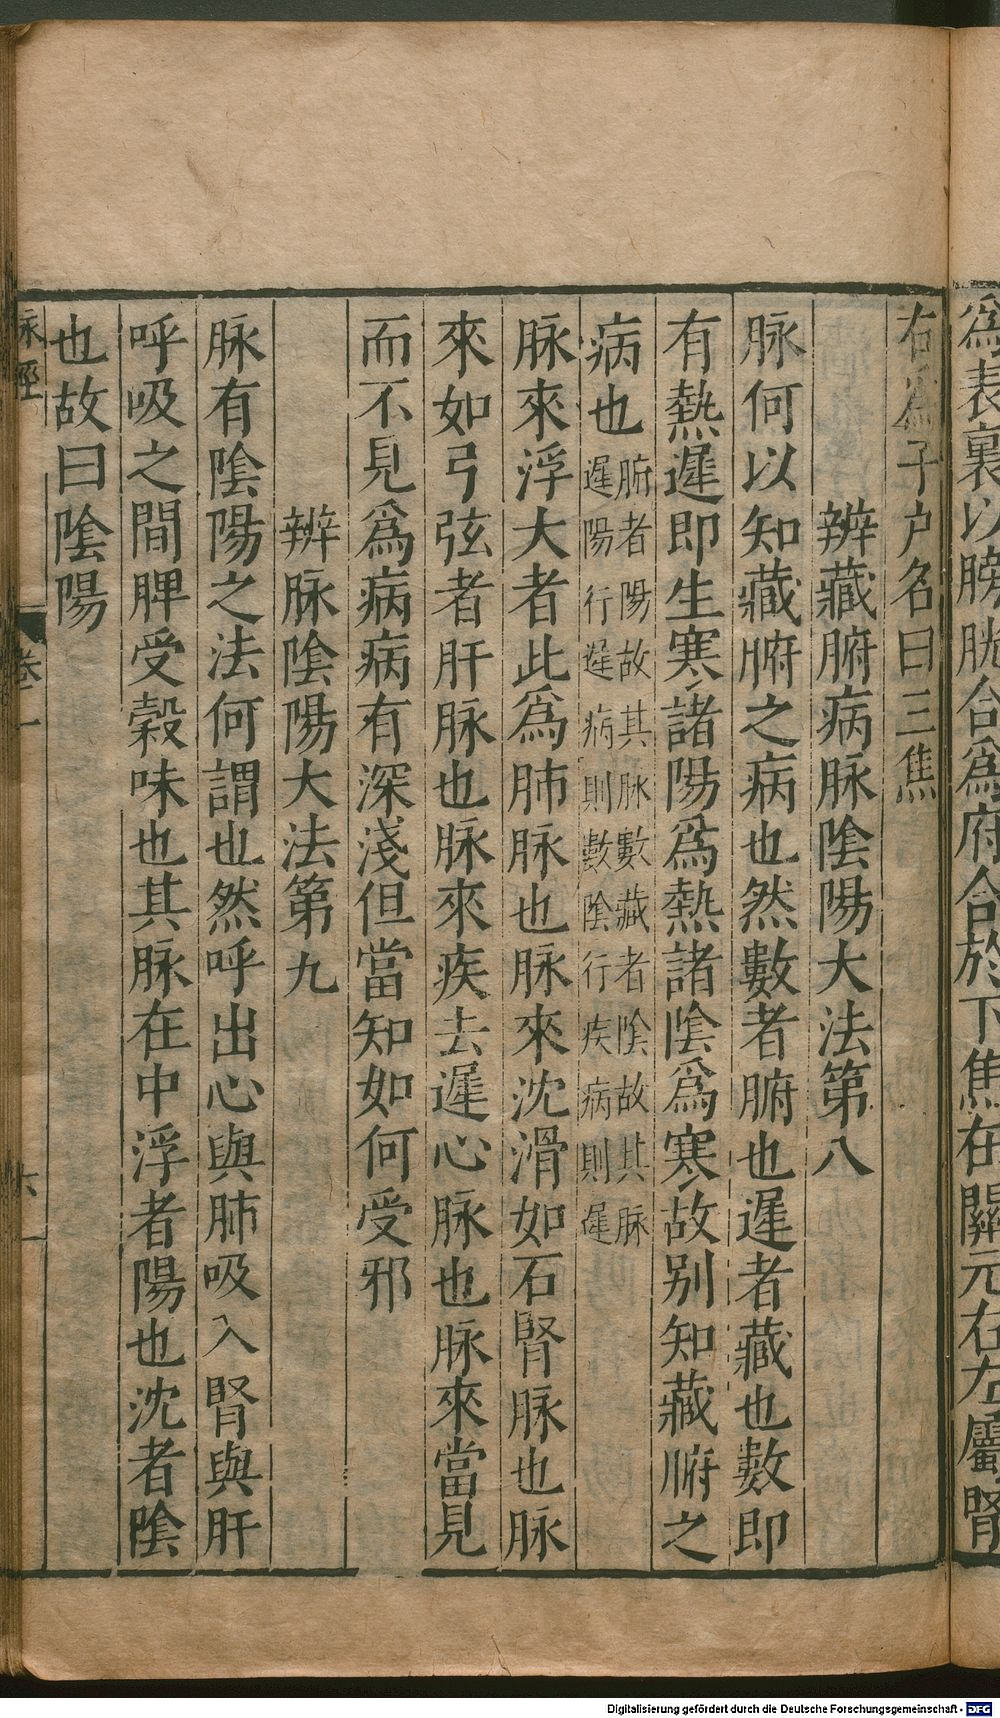 爲表裏以膀胱合爲府合於下焦在關元右左屬腎
右爲子户名曰三焦
辨藏腑病脉陰陽大法第八
脉何以知藏腑之病也然數者腑也遲者藏也數即
有熱遲即生寒諸陽爲熱諸陰爲寒故别知藏腑之
病也腑者陽故其脉數藏者陰故其脉
遲陽行遲病則數陰行疾病則遲
脉來浮大者此爲肺脉也脉來沈滑如石腎脉也脉
來如弓弦者肝脉也脉來疾去遲心脉也脉來當見
而不見爲病病有深淺但當知如何受邪
辨脉陰陽大法第九
脉有陰陽之法何謂也然呼出心與肺吸入腎與肝
呼吸之間脾受穀味也其脉在中浮者陽也沈者陰
也故曰陰陽
脉經
卷一
六
Digitalisierung gefördert durch die Deutsche Forschungsgemeinschaft - DFG